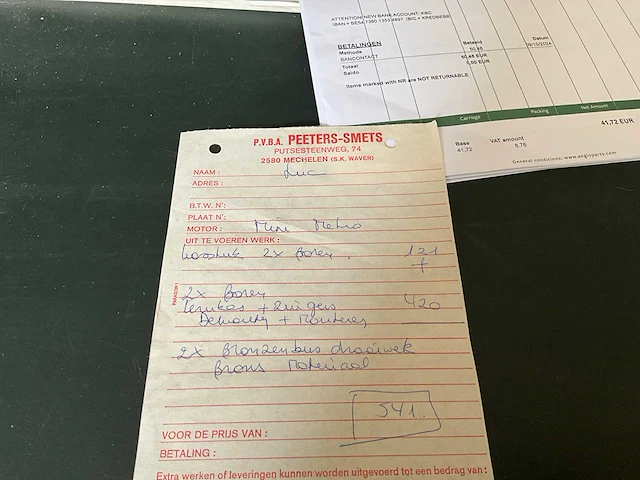 ATTENTION NEW BANK ACCOUNT: KBC
BETALINGEN
Methode Betaald Datum
BANCONTACT 50,48 09/10/2024
Totaal 50,48 EUR
Saldo 0,00 EUR
Items marked with NR are NOT RETURNABLE
Carriage Packing Net Amount
41,72 EUR
Base VAT amount
41,72 8,76
General conditions: www.angloparts.com
P.V.B.A. PEETERS-SMETS
PUTSESTEENWEG, 74
2580 MECHELEN (S.K. WAVER)
NAAM : Luc
ADRES :
B.T.W. N':
PLAAT N':
MOTOR : Mini Metro
UIT TE VOEREN WERK :
2x Boren . 121
+
2x Boren
+ Ringers 420
+ Monteren
2x Bronzenbus draaiwerk
Brons Materiaal
541.
VOOR DE PRIJS VAN :
BETALING :
Extra werken of leveringen kunnen worden uitgevoerd tot een bedrag van :